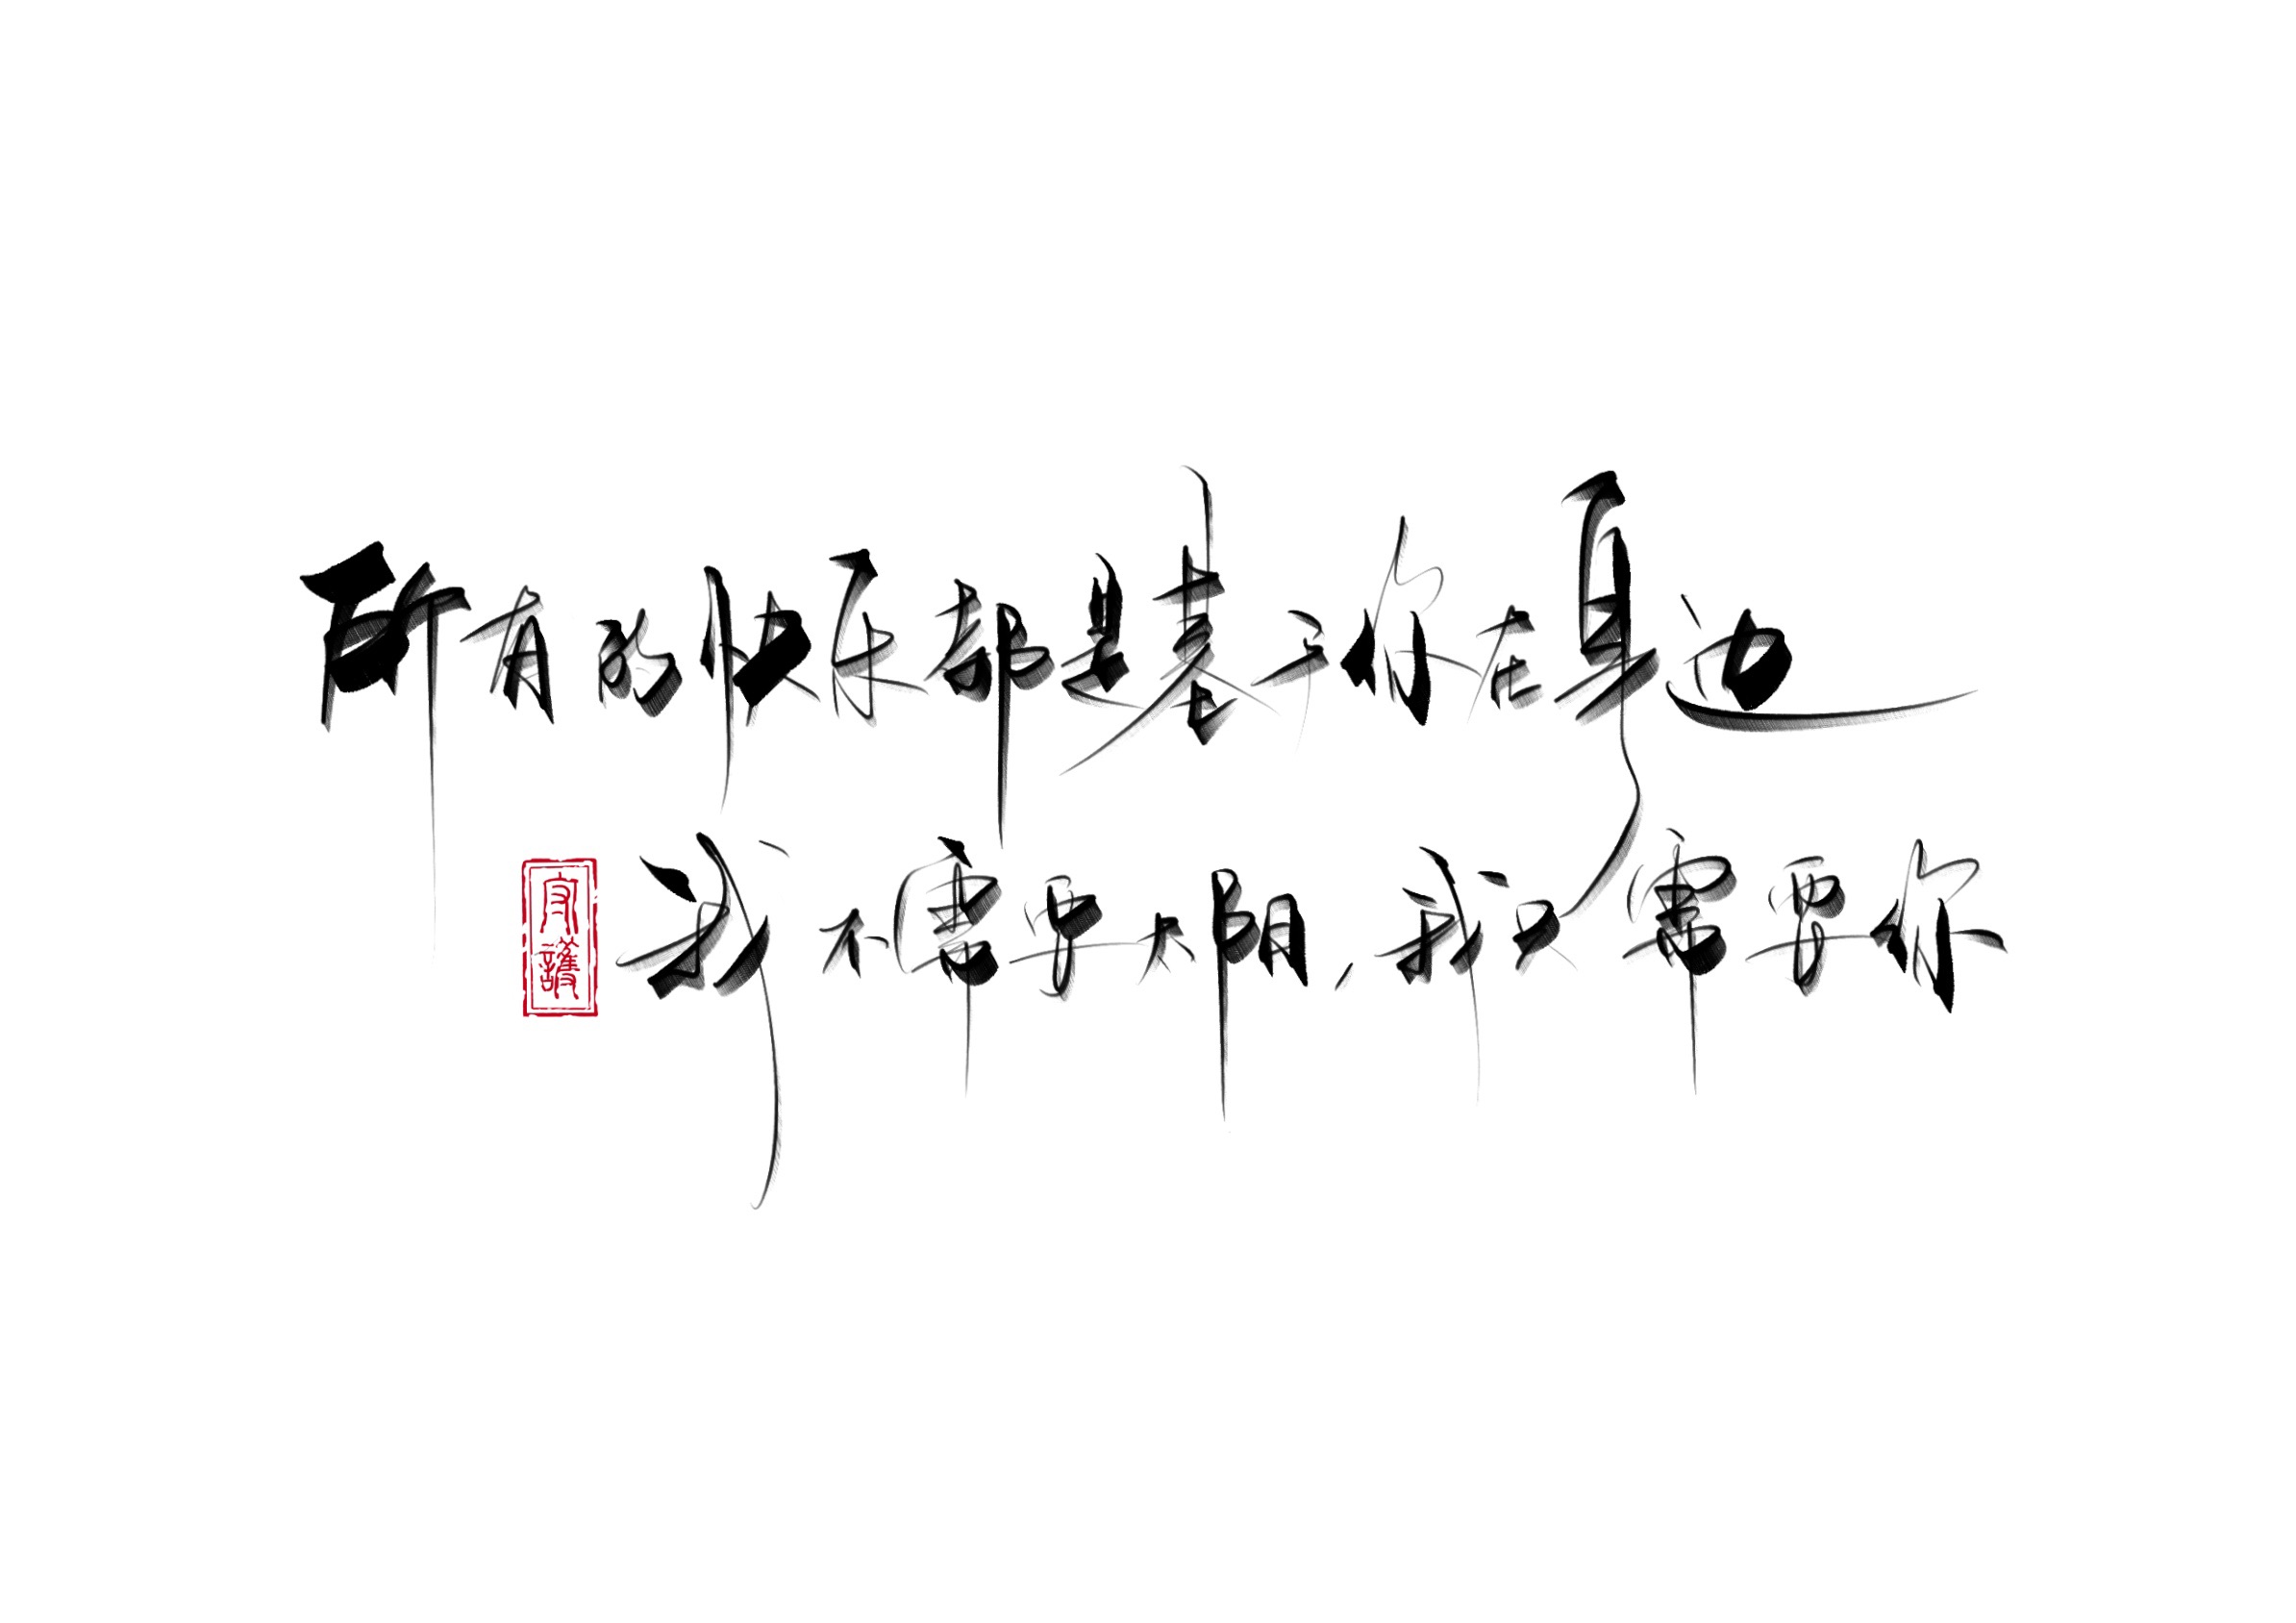 所有的快乐都是基于你在身边
我不需要太阳，我只需要你
守護